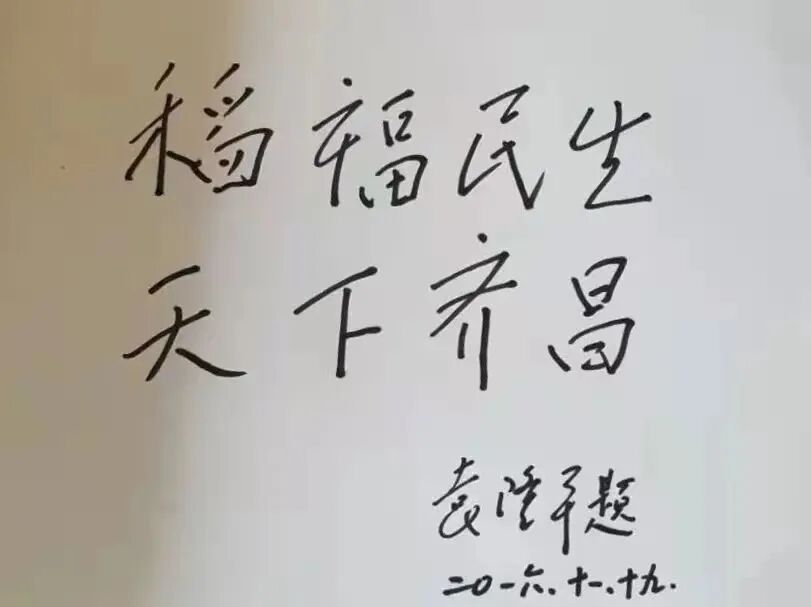 稻福民生
天下齐昌
袁隆平题
二〇一六.十一.十九.